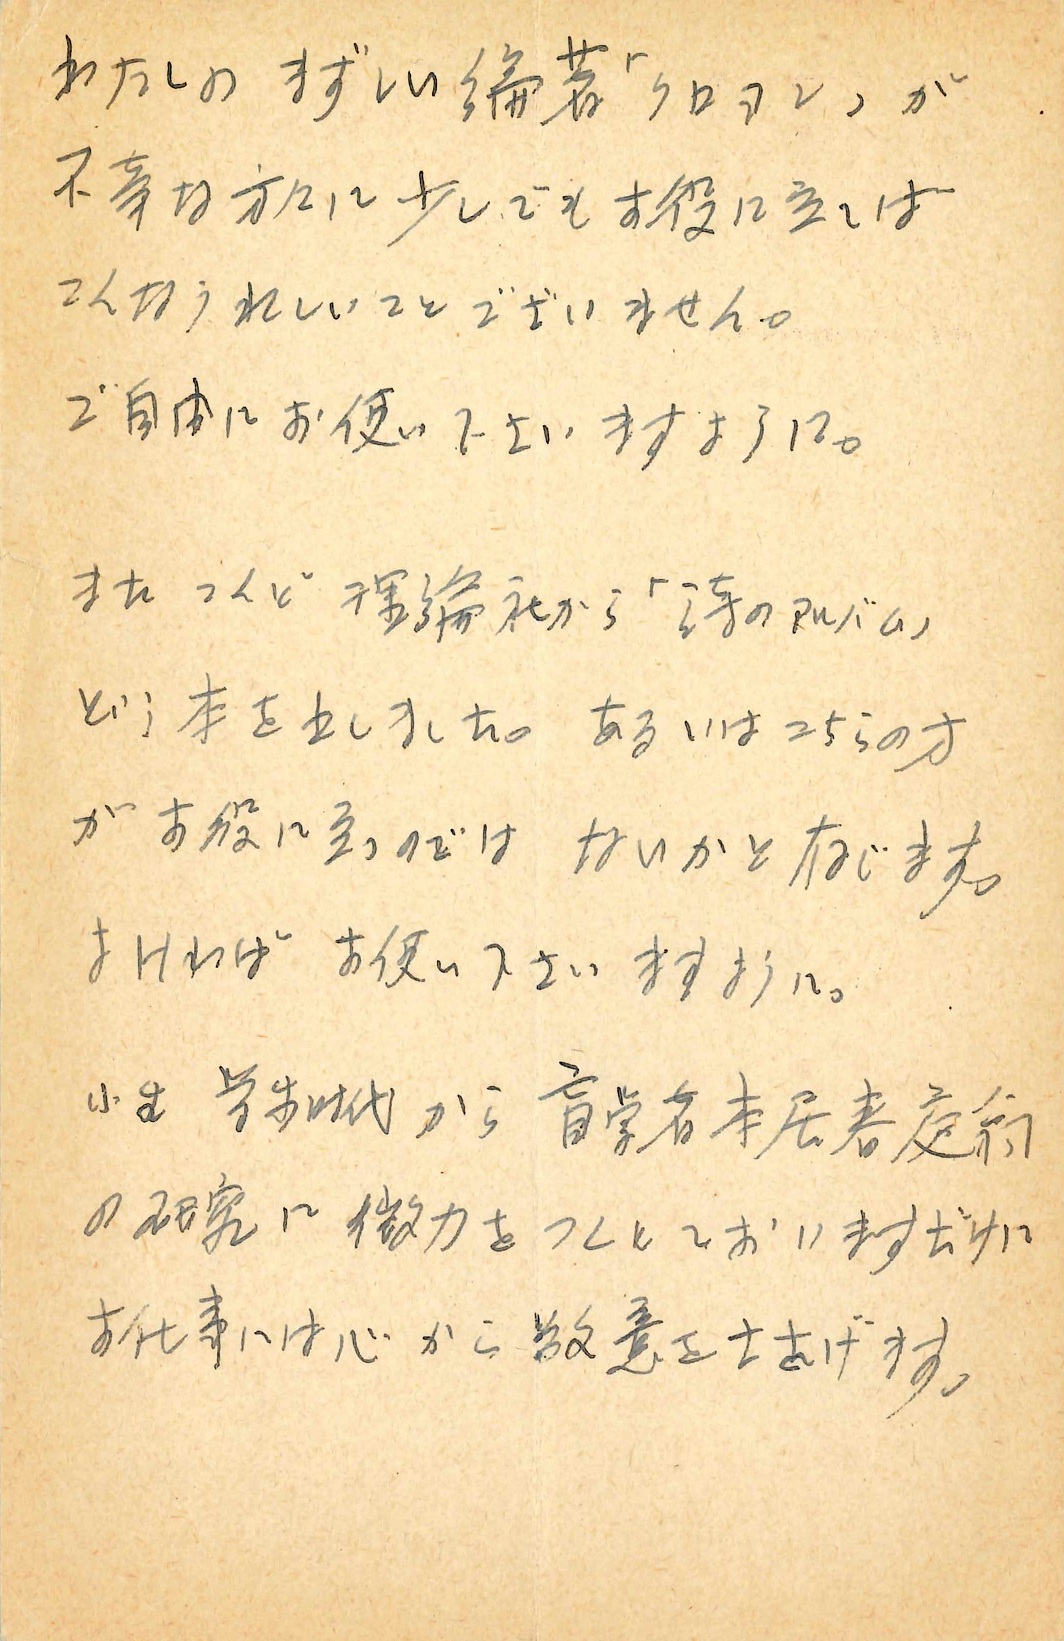 わたしの まずしい編著「クロヨン」が
不幸な方々に少しでもお役に立てば
こんなうれしいことございません。
ご自由にお使い下さいますように。
また こんど 理論社から「詩のアルバム」
という本を出しました。 あるいはこちらの方
がお役に立つのでは ないかと存じます。
よければ お使い下さいますように。
小生 学生時代から盲学者本居春庭翁
の研究に微力をつくしておりますだけに
お仕事には心から敬意をささげます。